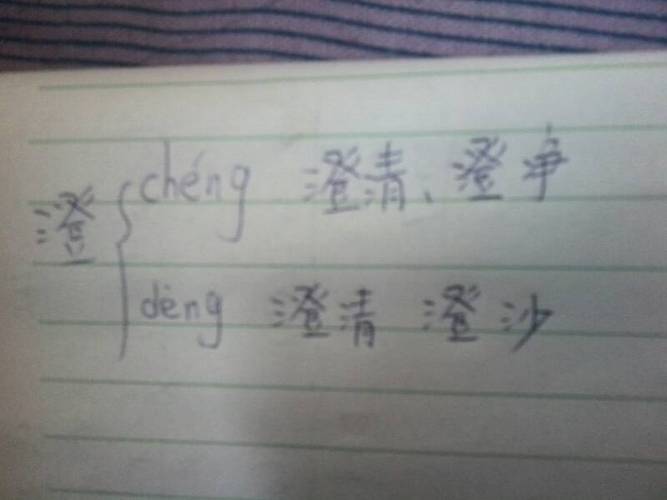 澄
chéng 澄清、澄净
dèng 澄清 澄沙